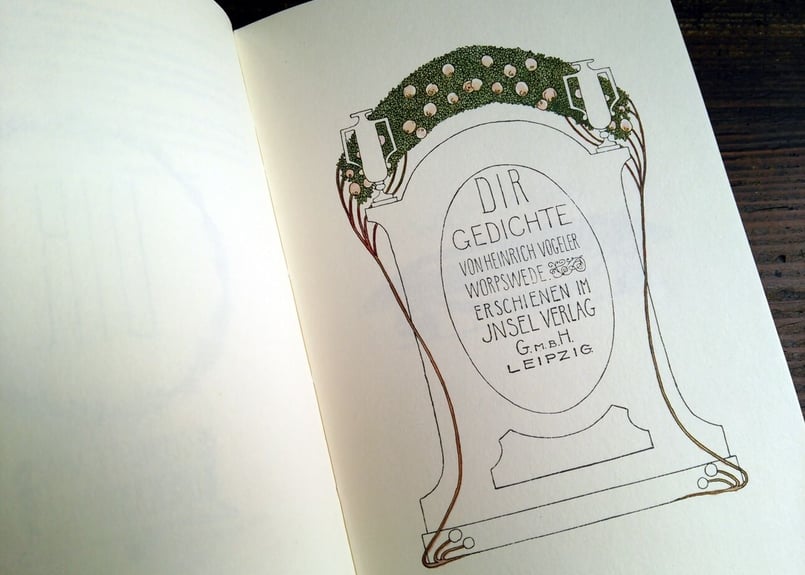 DIR
GEDICHTE
VON HEINRICH VOGELER
WORPSWEDE.
ERSCHIENEN IM
JNSEL VERLAG
G.M.B.H.
LEIPZIG.